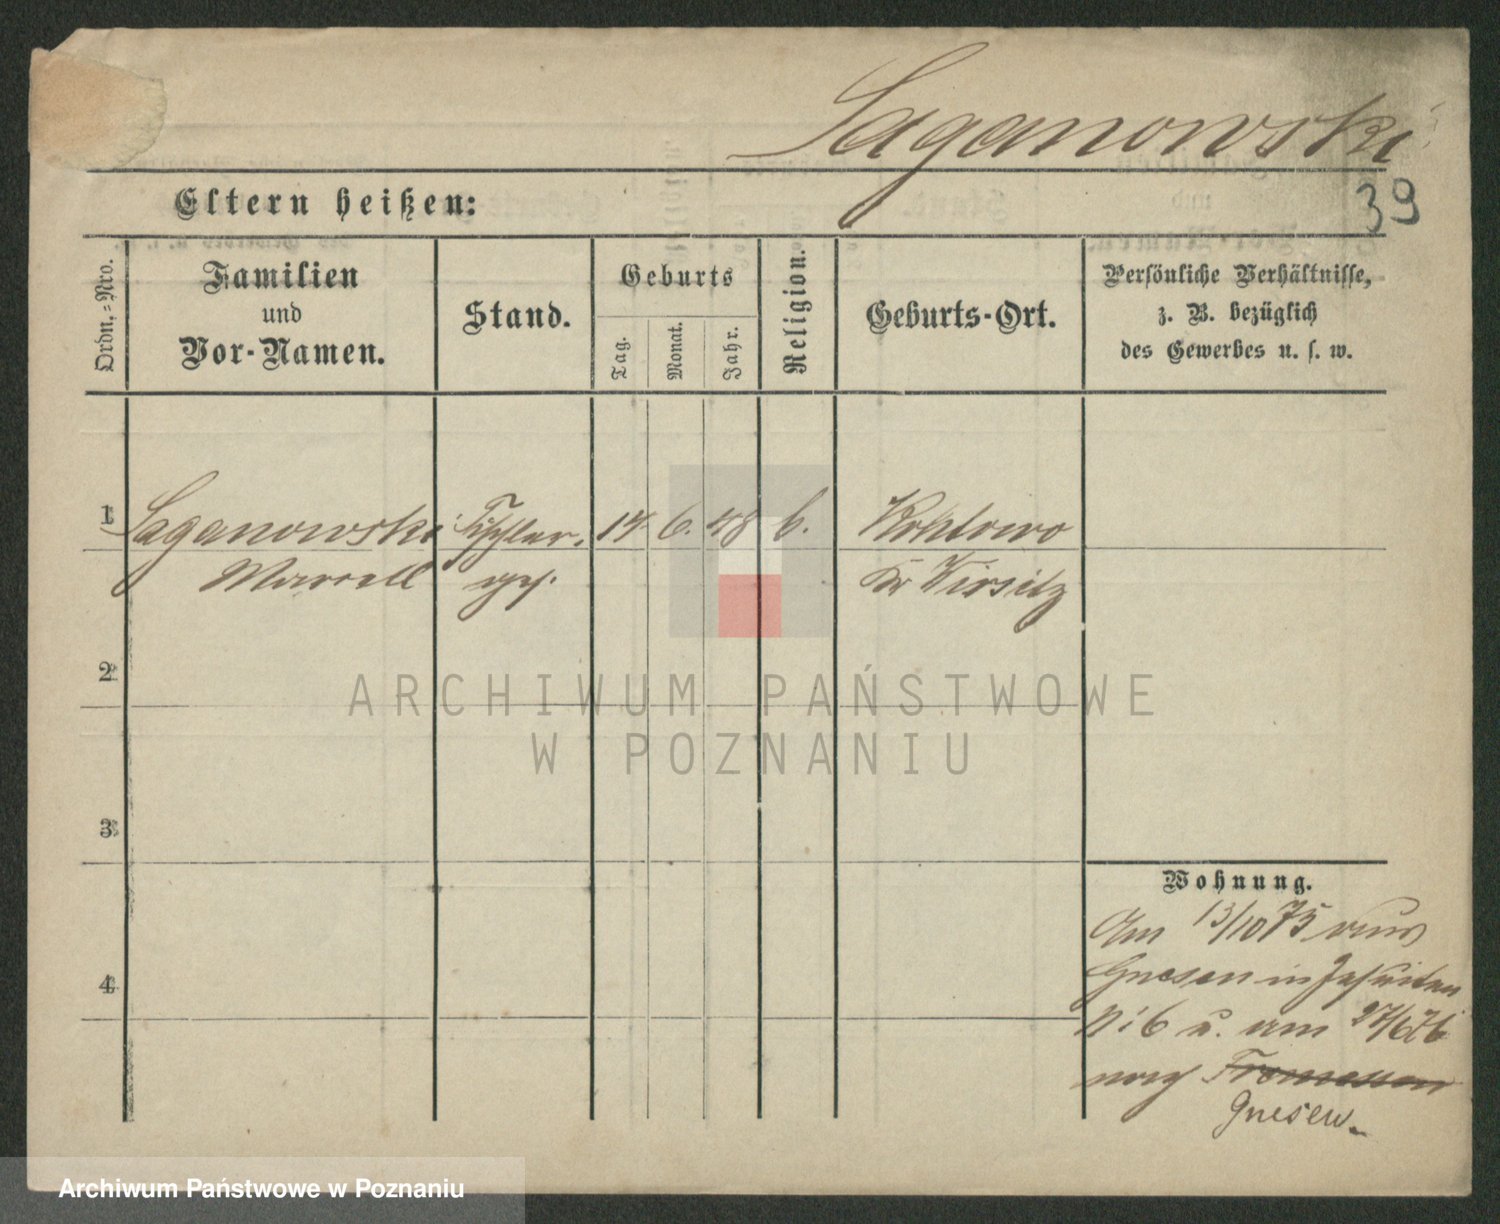 Saganowski
39
Eltern heißen:
Ordn.-Nro.
Familien
und
Vor-Namen.
Stand.
Geburts
Tag.
Monat.
Jahr.
Religion.
Geburts-Ort.
Persönliche Verhältnisse,
z. B. bezüglich
des Gewerbes u. s. w.
1
Saganowski Tischler. 14 6. 48
Marcell ges.
Kr Wirsitz
2
3
4
Wohnung.
Am 13/10 75 aus
Gnesen in
u. am 27/6 76
nach Tremessen
Gnesen.
ARCHIWUM PAŃSTWOWE
W POZNANIU
Archiwum Państwowe w Poznaniu